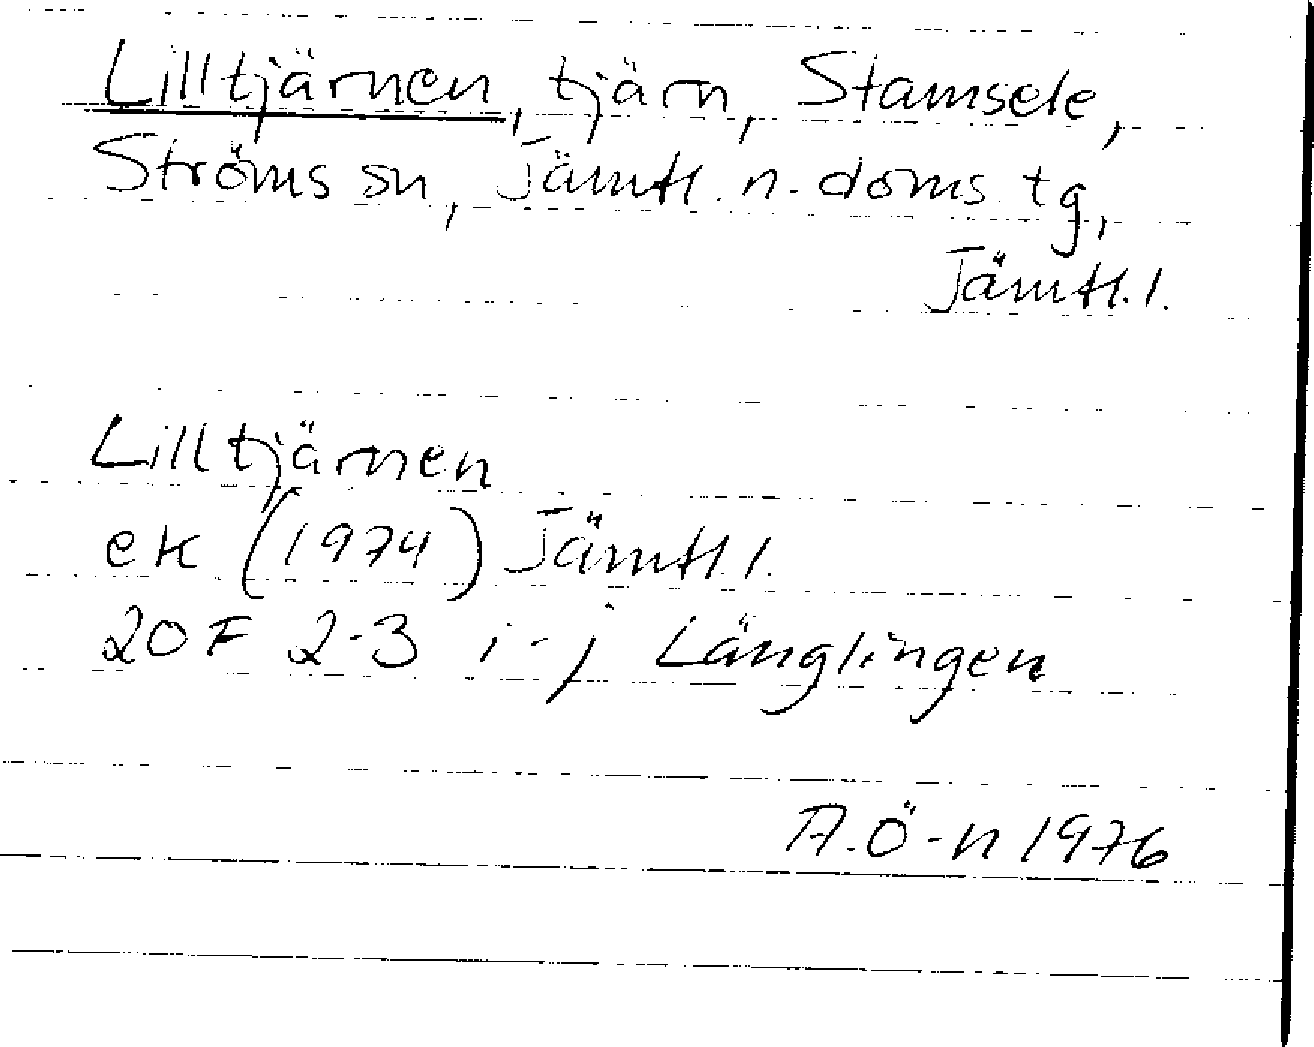 Lilltjärnen, tjärn, Stamsele,
Ströms sn, Jämtl. n. doms tg,
Jämtl. l.
Lilltjärnen
ek (1974) Jämtl l.
20 F 2-3 i-j Länglingen
A.Ö-n 1976